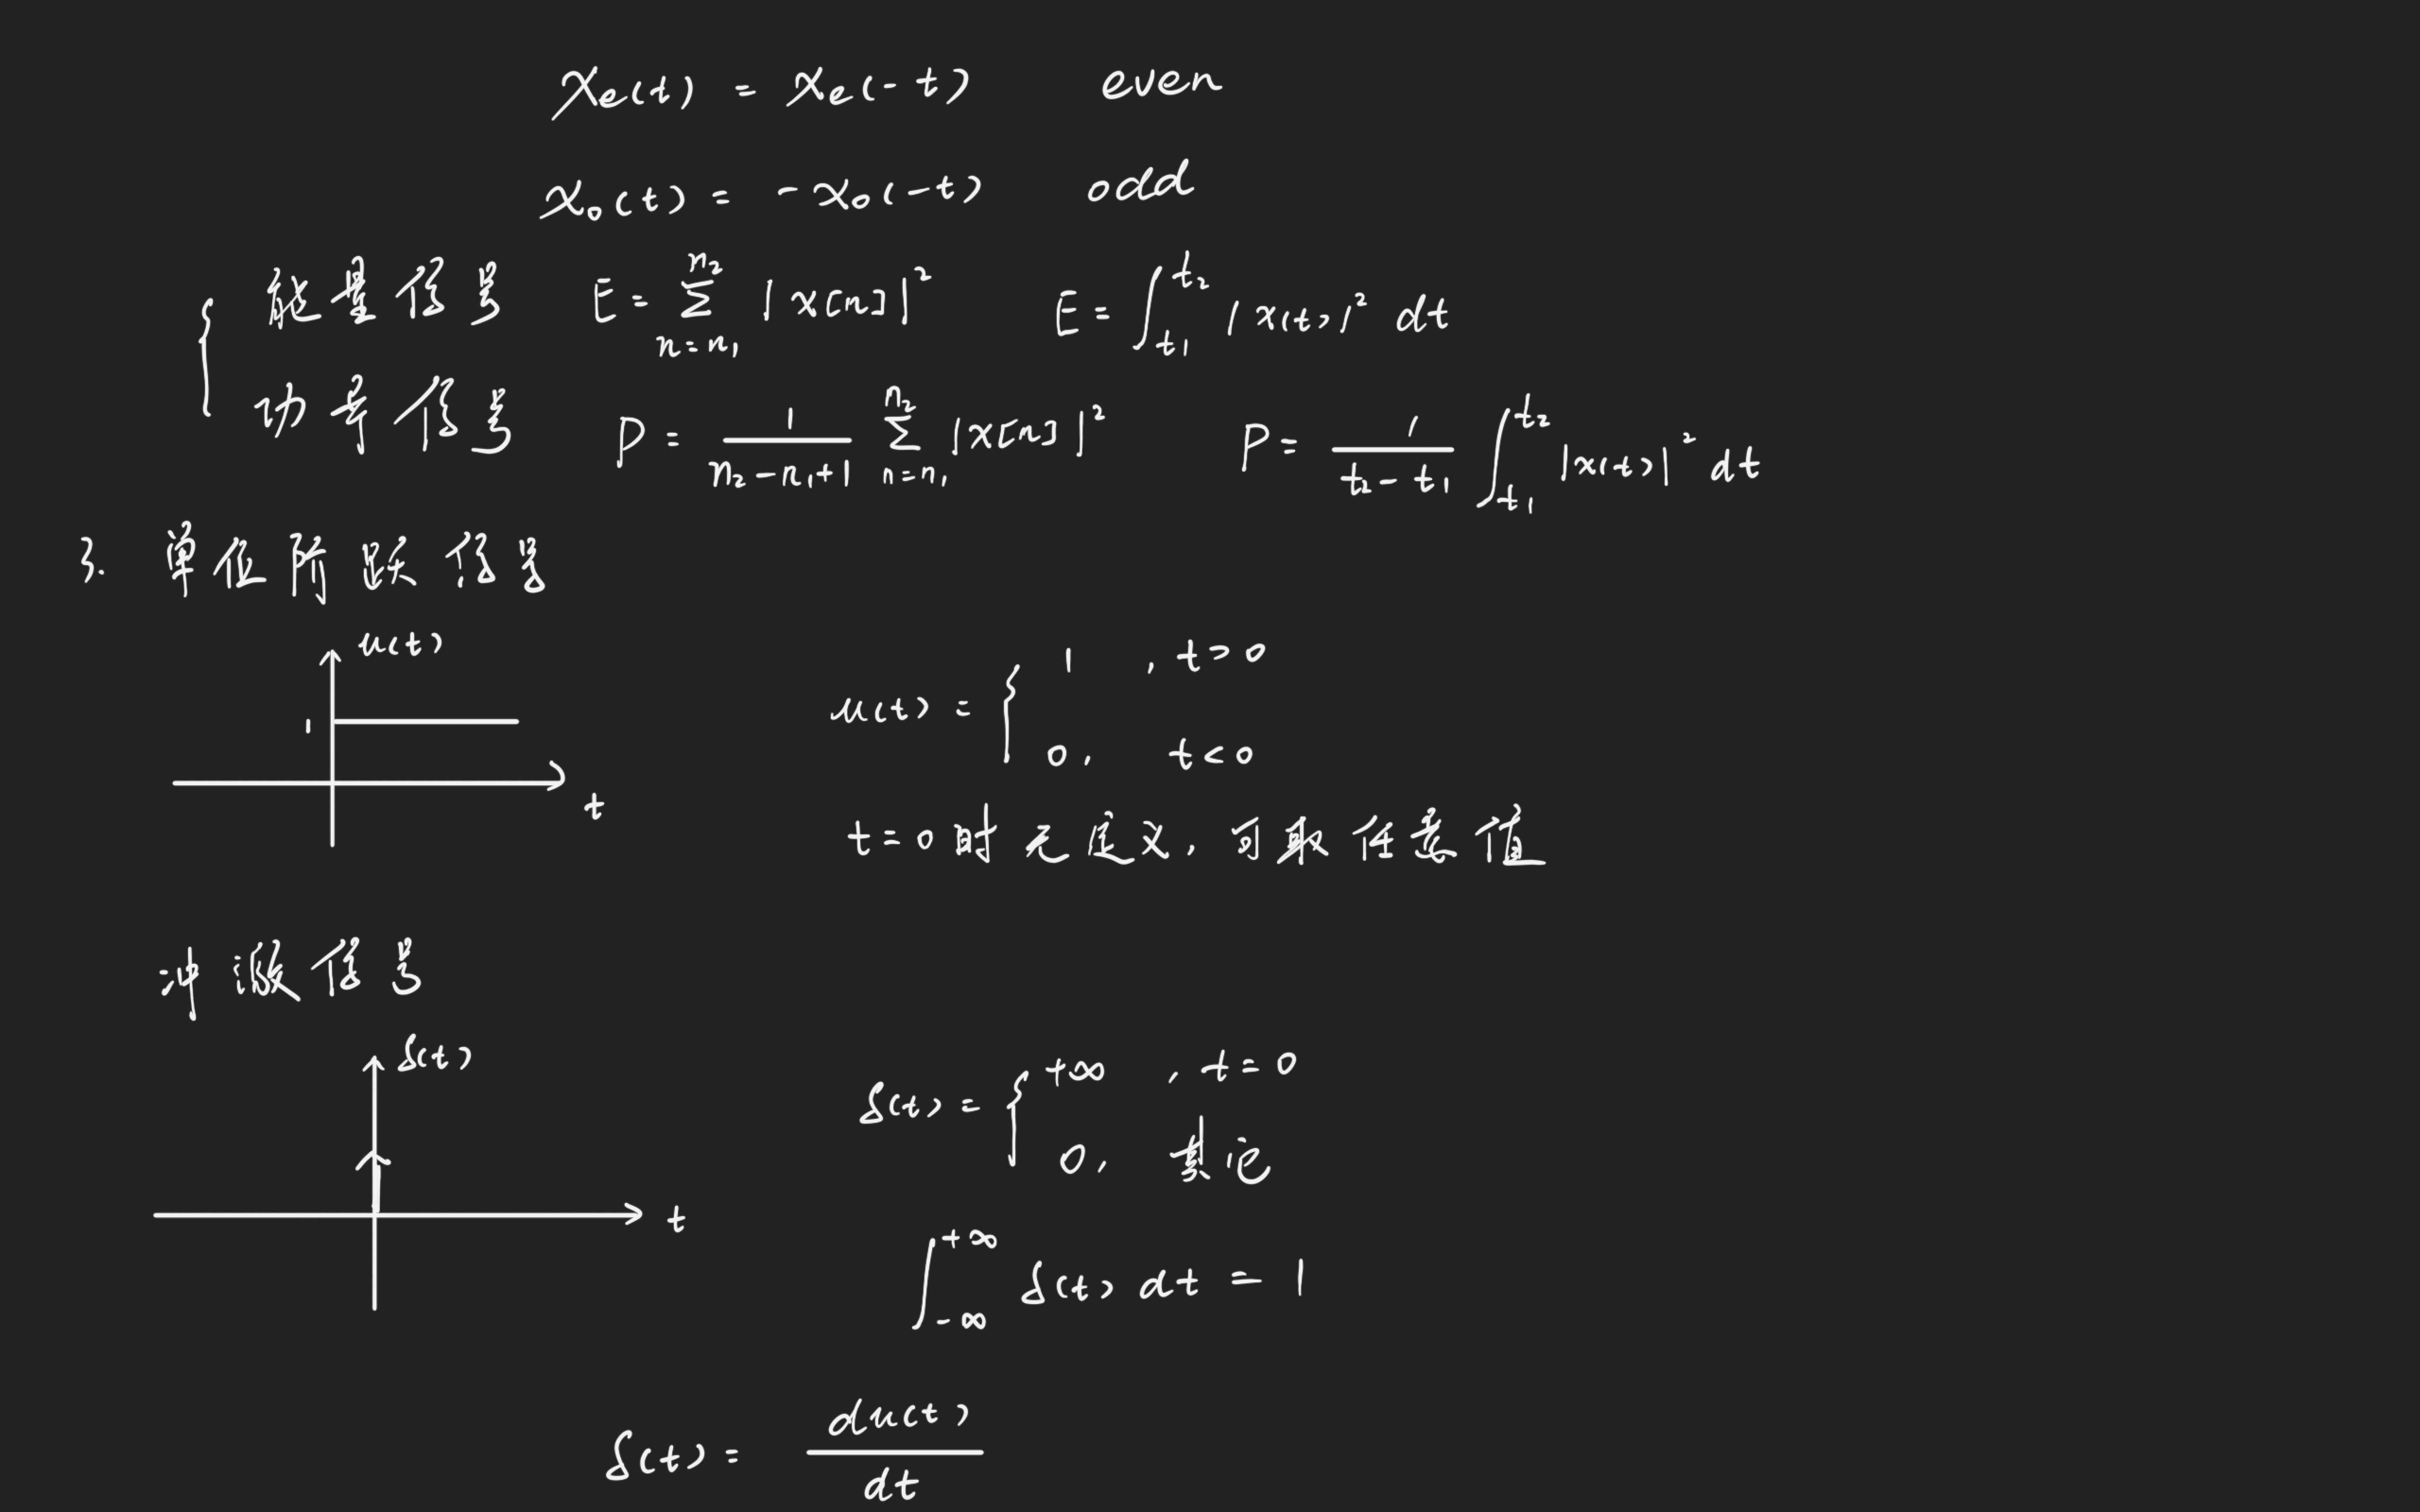 xₑ(t) = xₑ(-t) even
x₀(t) = -x₀(-t) odd
{ 能量信号 E = Σ_{n=n₁}^{n₂} |x[n]|² E = ∫_{t₁}^{t₂} |x(t)|² dt
功率信号 P = 1/(n₂-n₁+1) Σ_{n=n₁}^{n₂} |x[n]|² P = 1/(t₂-t₁) ∫_{t₁}^{t₂} |x(t)|² dt
3. 单位阶跃信号
u(t)
1
t
u(t) = { 1 , t>0
0, t<0
t=0时无定义,可取任意值
冲激信号
δ(t)
t
δ(t) = { +∞ , t=0
0, 其它
∫_{-∞}^{+∞} δ(t) dt = 1
δ(t) = du(t)/dt